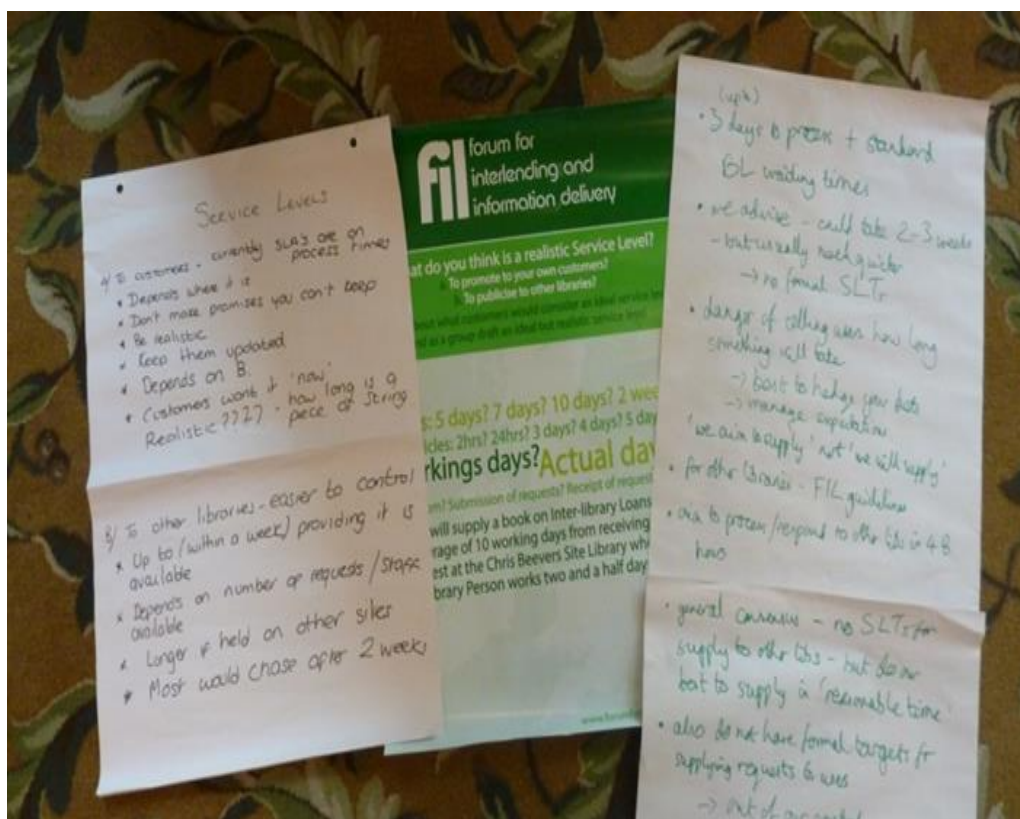 SERVICE LEVELS
A/ To customers - currently SLA's are on
process times
* Depends where it is
* Don't make promises you can't keep
* Be realistic
* Keep them updated
* Depends on B.
* Customers want it 'now'
Realistic ???? - how long is a
piece of string
B/ To other libraries - easier to control
* Up to/within a week) providing it is
available
* Depends on number of requests / staff
available
* Longer if held on other sites
* Most would chase after 2 weeks
fil forum for
interlending and
information delivery
at do you think is a realistic Service Level?
To promote to your own customers?
To publicise to other libraries?
about what customers would consider an ideal service
as a group draft an ideal but realistic service level
s: 5 days? 7 days? 10 days? 2 wee
cles: 2hrs? 24hrs? 3 days? 4 days? 5 day
rkings days? Actual day
m? Submission of requests? Receipt of request
will supply a book on Inter-library Loans
rage of 10 working days from receiving
est at the Chris Beevers Site Library wh
brary Person works two and a half day
(up to)
• 3 days to process + standard
BL waiting times
• we advise - could take 2-3 weeks
- but usually much quicker
→ no formal SLTs
• danger of telling users how long
something will take
→ best to hedge your bets
→ manage expectation
'we aim to supply' not 'we will supply'
• for other libraries - FIL guidelines
• aim to process/respond to other libs in 48
hours
• general consensus - no SLTs for
supply to other libs - but do our
best to supply in 'reasonable time'
• also do not have formal targets for
supplying requests to users
→ out of our control